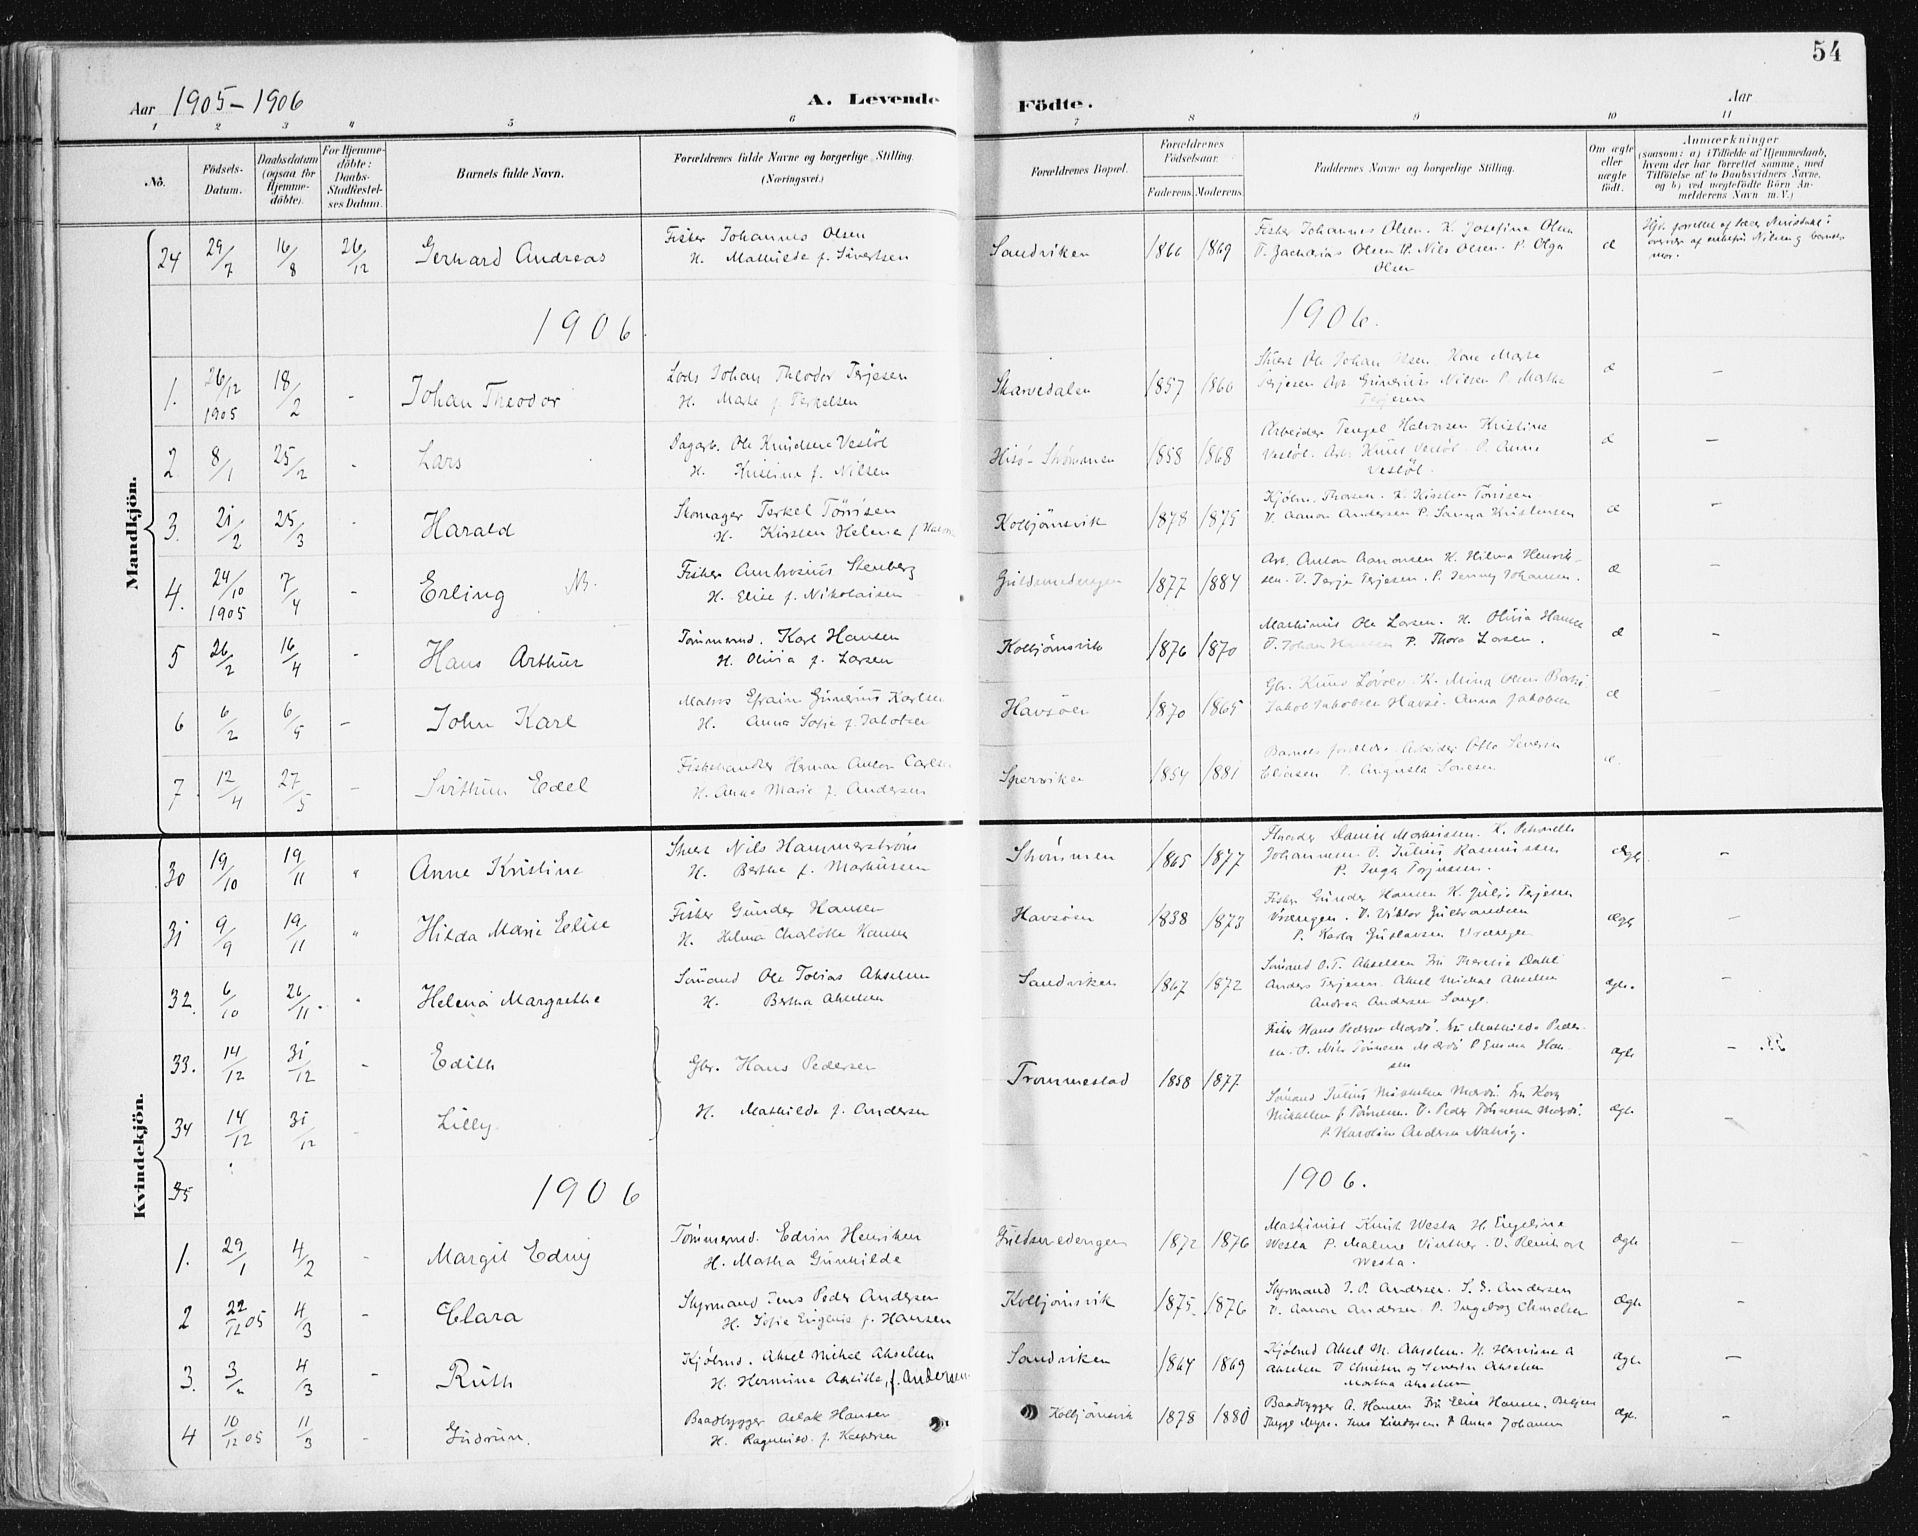 54
Aar 1905-1906
A. Levende
Födte.
Aar
1 2 3 4 5 6 7 8 9 10 11
No.
Födsels-Datum.
Daabsdatum (ogsaa for Hjemme-döbte).
For Hjemme-döbte: Daabs-Stadfæstel-ses Datum.
Barnets fulde Navn.
Forældrenes fulde Navne og borgerlige Stilling.
(Næringsvei.)
Forældrenes Bopæl.
Forældrenes Födselsaar.
Faderens. Moderens.
Faddernes Navne og borgerlige Stilling.
Om ægte eller uægte födt.
Anmærkninger
(saasom: a) i Tilfælde af Hjemmedaab, hvem der har forrettet samme, med Tilföielse af to Daabsvidners Navne, og b) ved uægtefödte Börn An-melderens Navn m. V.)
Mandkjön.
24 29/7 16/8 26/12 Gerhard Andreas Fisker Johannes Olsen
H. Mathilde f. Sivertsen Sandviken 1866 1869 Fisker Johannes Olsen. K. Josefine Olsen
V. Zacharias Olsen H. Nils Olsen. P. Olga
Olsen
1906 1906.
1. 26/12 1905 18/2 - Johan Theodor Lods Johan Theodor Terjesen
H. Marte f. Terkelsen Skarvedalen 1857 1860
Terjesen Arb. Gunerius Nilsen P. Marthe
Terjesen
2 8/1 25/2 - Lars Dagarb. Ole Knudsen Vestöl
H. Kristine f. Nilsen Hisö-Strömmen 1858 1868 Arbeider Tengel Halvorsen Kristine
Vestöl. Arb. Knut Vestöl. P. Anne
Vestöl.
3. 21/2 25/3 - Harald Skomager Terkel Tönnsen
H. Kirsten Helene f. Kolbjörnsvik 1878 1875
V. Aanon Andersen P. Sanna Kristensen
4. 24/10 1905 7/4 - Erling NB. Fisker Ambrosius Stenberg
H. Elise f. Nikolaisen Guldsmedengen 1877 1884 Arb. Anton Aanonsen K. Hilma Henrik-
sen. V. Terje Terjesen. P. Jenny Johansen.
5 26/2 16/4 - Hans Arthur Tömmermd. Karl Hansen
H. Olivia f. Larsen Kolbjörnsvik 1876 1870 Maskinist Ole Larsen. H. Olivia Hansen
V. Johan Hansen P. Thora Larsen.
6 6/2 6/5 - John Karl Matros Efraim Gunerius Karlsen
H. Anna Sofie f. Jakobsen Havsöen 1870 1865
Jakob Jakobsen Havsö. Anna Jakobsen
7 12/4 27/5 - Svithun Edel Fiskehandler Herman Anton Carlsen
H. Anne Marie f. Andersen Sperviken 1854 1881 Barnets forældre. Arbeider Otto Severin
Eliasen P. Augusta
Kvindekjön.
30 19/10 19/11 " Anne Kristine Stuert Nils Hammerström
H. Berthe f. Markussen Strömmen 1865 1877
Johannesen. V. Julius Rasmussen
P. Inga Terjesen. ægte -
31 9/9 19/11 " Hilda Marie Eelise Fisker Gunder Hansen
H. Helma Charlotte Hansen Havsöen 1838 1873 Fisker Gunder Hansen K. Julie Terjesen
Vrængen. V. Viktor Gulbrandsen
P. Karla Gustavsen Vrængen ægte -
32. 6/10 26/11 " Helena Margrethe Sömand Ole Tobias Akselsen
H. Bertha Akselsen Sandviken 1867 1872 Sömand O.T. Akselsen Fru Theresie Dahl
Anders Terjesen. Aksel Michal Akselsen
Andrea Andersen Songe. ægte. -
33. 14/12 31/12 - Edith Gbr. Hans Pedersen
H. Mathilde f. Andersen Trommestad 1858 1877 Fisker Hans Pedersen Mærdö. Fru Mathilde Peder-
sen. V. Nils Tönnesen Mærdö P. Emma Han-
sen ægte -
34 14/12 31/12 - Lilly Sömand Julius Mikkelsen Mærdö. Fru Kary
Mikkelsen f. Tönnesen. V. Peder Tönnesen Mærdö.
P. Karoline Andersen ægte.
35 1906 1906.
1. 29/1 4/2 - Margit Edny Tömmermd. Edvin Henriksen
H. Matha Gunhilde Guldsmedengen 1872 1876 Maskinist Knut Westa H. Engeline
Westa P. Malene Vinther. V. Reinhart
Westa. ægte -
2 22/12 05 4/3 - Clara Styrmand Jens Peder Andersen
H. Sofie Eugenie f. Hansen Kolbjörnsvik 1875. 1876 Styrmand J. P. Andersen. S. E. Andersen
V. Aanon Andersen. P. Ingeborg ægte -
3. 3/ 4/3 - Ruth Kjöbmd. Aksel Mikel Akselsen
H. Hermine f. Andersen Sandviken 1864 1869 Kjöbmd Aksel M. Akselsen. H. Hermine A
Akselsen V. Christen og Severin Akselsen
Martha Akselsen ægte. -
4 10/12 05 11/3 - Gudrun. Baadbygger Aslak Hansen
H. Ragnhild f. Kaspersen Kolbjörnsvik 1878 1880 Baadbygger A. Hansen Fru Elise Hansen.
P. Anna Johansen ægte. -